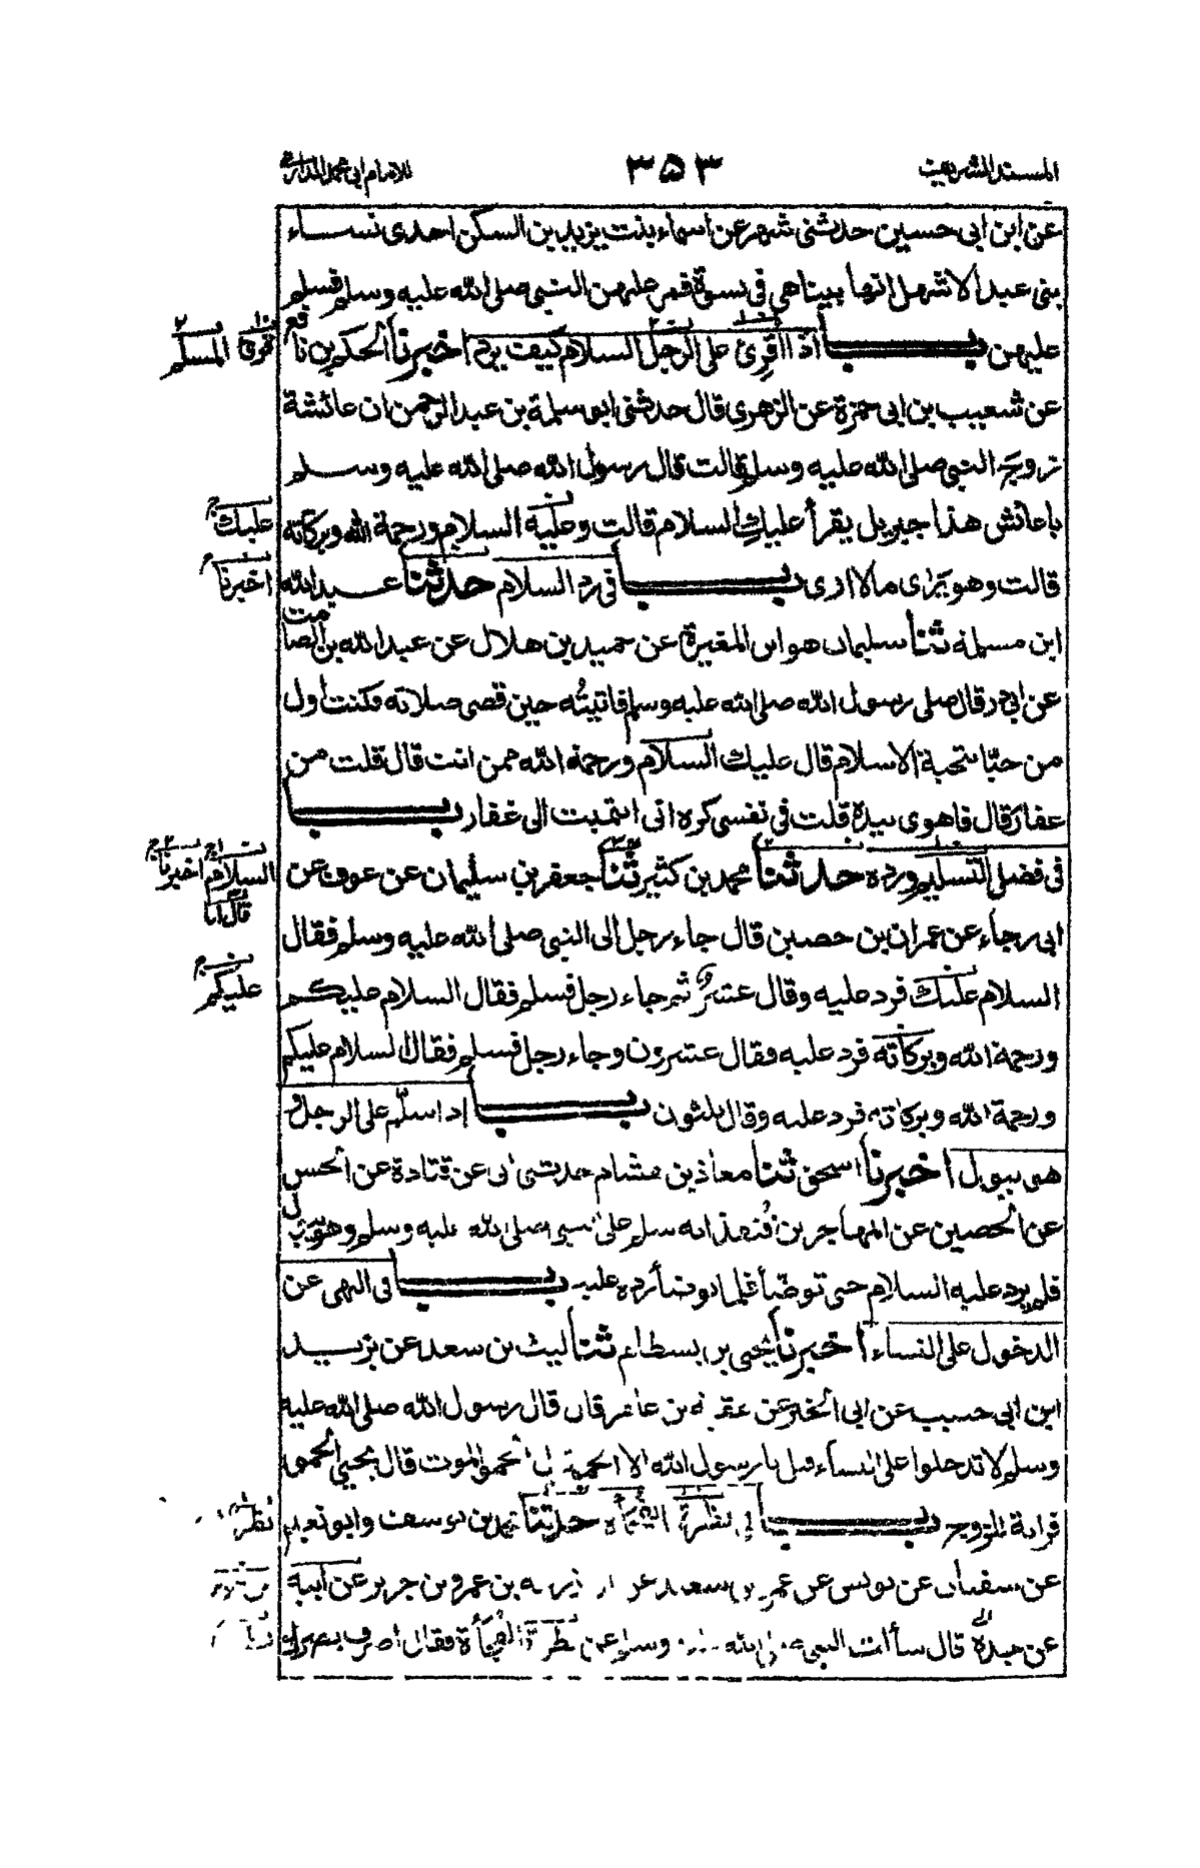 المسند الشريف ٣٥٣ للامام ابى محمد الدارمى
عن ابن ابى حسين حدثنى شهر عن اسماء بنت يزيد بن السكن احدى نساء
بنى عبد الاشهل انها بيناهى فى نسوة فمر عليهن النبى صلى الله عليه وسلم فسلم
عليهن باب اذا اقرئ على الرجل السلام كيف يرد اخبرنا الحكم بن نافع
فقرئ المسلم
عن شعيب بن ابى حمزة عن الزهرى قال حدثنى ابو سلمة بن عبد الرحمن ان عائشة
زوج النبى صلى الله عليه وسلم قالت قال رسول الله صلى الله عليه وسلم
يا عائش هذا جبريل يقرأ عليك السلام قالت وعليه السلام ورحمة الله وبركاته
عليك
قالت وهو يرى مالا ارى باب فى رد السلام حدثنا عبد الله
اخبرنا
ابن مسلمة ثنا سليمان هو ابن المغيرة عن حميد بن هلال عن عبد الله بن الصامت
عن ابى ذر قال صلى رسول الله صلى الله عليه وسلم فاتيته حين قضى صلاته فكنت اول
من حيا بتحية الاسلام قال عليك السلام ورحمة الله ممن انت قال قلت من
غفار قال فاهوى بيده قلت فى نفسى كره انى انتميت الى غفار باب
فى فضل التسليم ورده حدثنا محمد بن كثير ثنا جعفر بن سليمان عن عوف عن
السلام اخبرنا
قال انا
ابى رجاء عن عمران بن حصين قال جاء رجل الى النبى صلى الله عليه وسلم فقال
السلام عليك فرد عليه وقال عشر ثم جاء رجل فسلم فقال السلام عليكم
عليكم
ورحمة الله وبركاته فرد عليه فقال عشرون وجاء رجل فسلم فقال السلام عليكم
ورحمة الله وبركاته فرد عليه وقال ثلثون باب اذا سلم على الرجل و
هو يبول اخبرنا اسحق ثنا معاذ بن هشام حدثنى ابى عن قتادة عن الحسن
عن الحصين عن المهاجر بن قنفذ انه سلم على النبى صلى الله عليه وسلم وهو يبول
فلم يرد عليه السلام حتى توضأ فلما توضأ رده عليه باب فى النهى عن
الدخول على النساء اخبرنا يحيى بن بسطام ثنا ليث بن سعد عن يزيد
ابن ابى حبيب عن ابى الخير عن عقبة بن عامر قال قال رسول الله صلى الله عليه
وسلم لا تدخلوا على النساء قيل يا رسول الله الا الحمو قال الحمو الموت قال يحيى الحمو
قرابة للزوج باب فى نظرة الفجأة حدثنا محمد بن يوسف وابو نعيم
نظر
عن سفيان عن يونس عن عمرو بن سعيد عن ابى زرعة بن عمرو بن جرير عن ابيه
عن جده قال سألت النبى صلى الله عليه وسلم عن نظرة الفجأة فقال اصرف بصرك